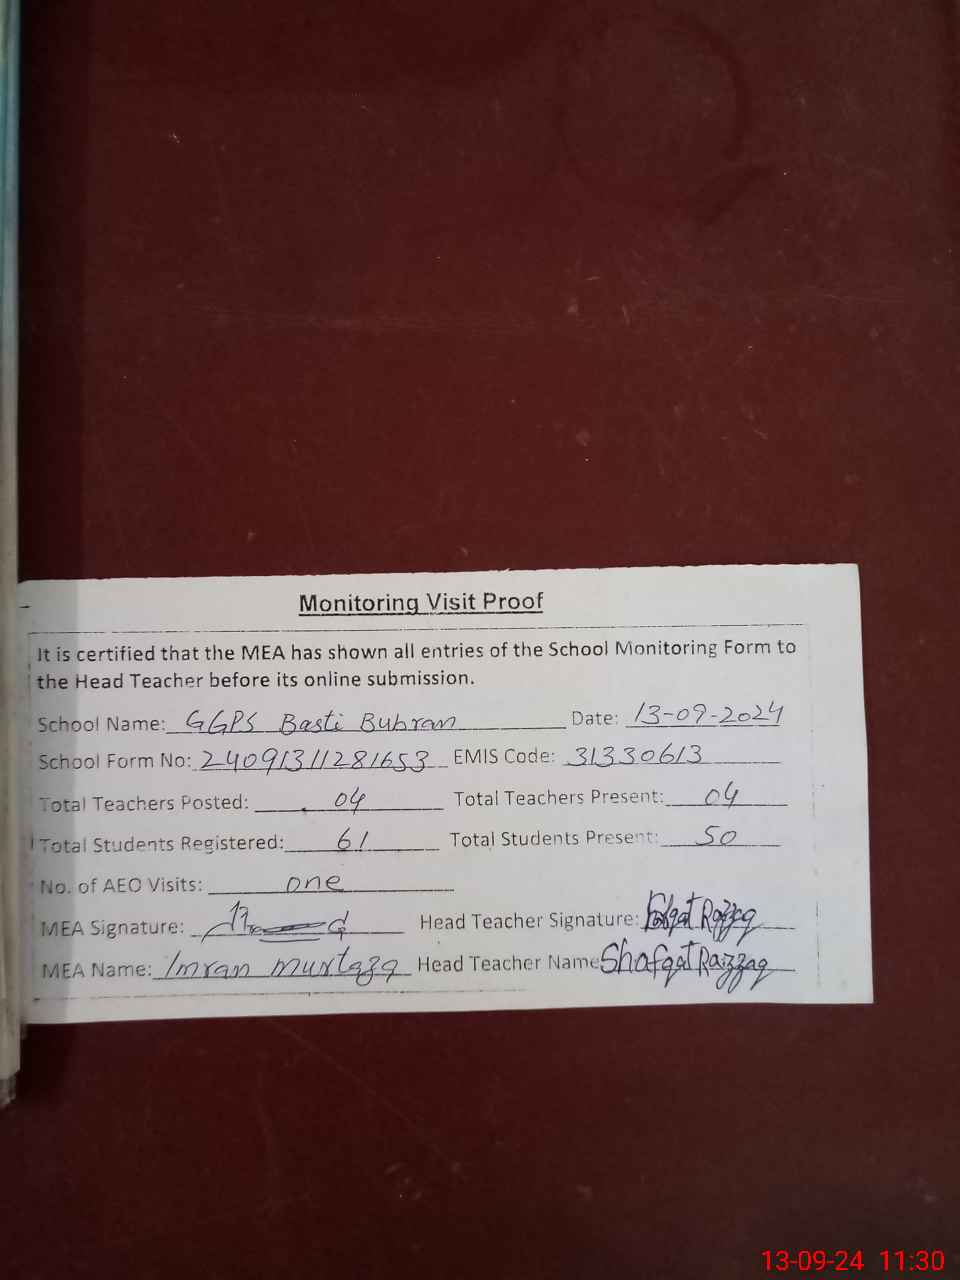 Monitoring Visit Proof
It is certified that the MEA has shown all entries of the School Monitoring Form to
the Head Teacher before its online submission.
School Name: GGPS Basti Bubran Date: 13-09-2024
School Form No: 24091311281653 EMIS Code: 31330613
Total Teachers Posted: 04 Total Teachers Present: 04
Total Students Registered: 61 Total Students Present: 50
No. of AEO Visits: one
MEA Signature: Head Teacher Signature: Razzaq
MEA Name: Imran murtaza Head Teacher Name Shafqat Razzaq
13-09-24 11:30